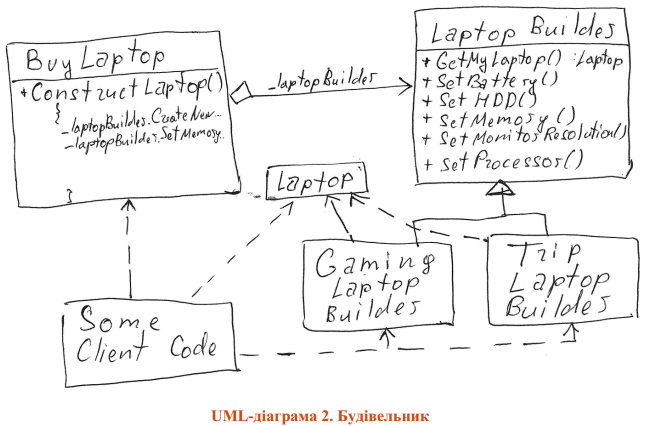 Buy Laptop
+ Construct Laptop()
{
_laptopBuilder.CreateNew...
_laptopBuilder.SetMemory..
}
_laptopBuilder
Laptop Builder
+ GetMyLaptop() : Laptop
+ SetBattery()
+ Set HDD()
+ SetMemory()
+ SetMonitorResolution()
+ SetProcessor()
Laptop
Gaming
Laptop
Builder
Trip
Laptop
Builder
Some
Client Code
UML-діаграма 2. Будівельник